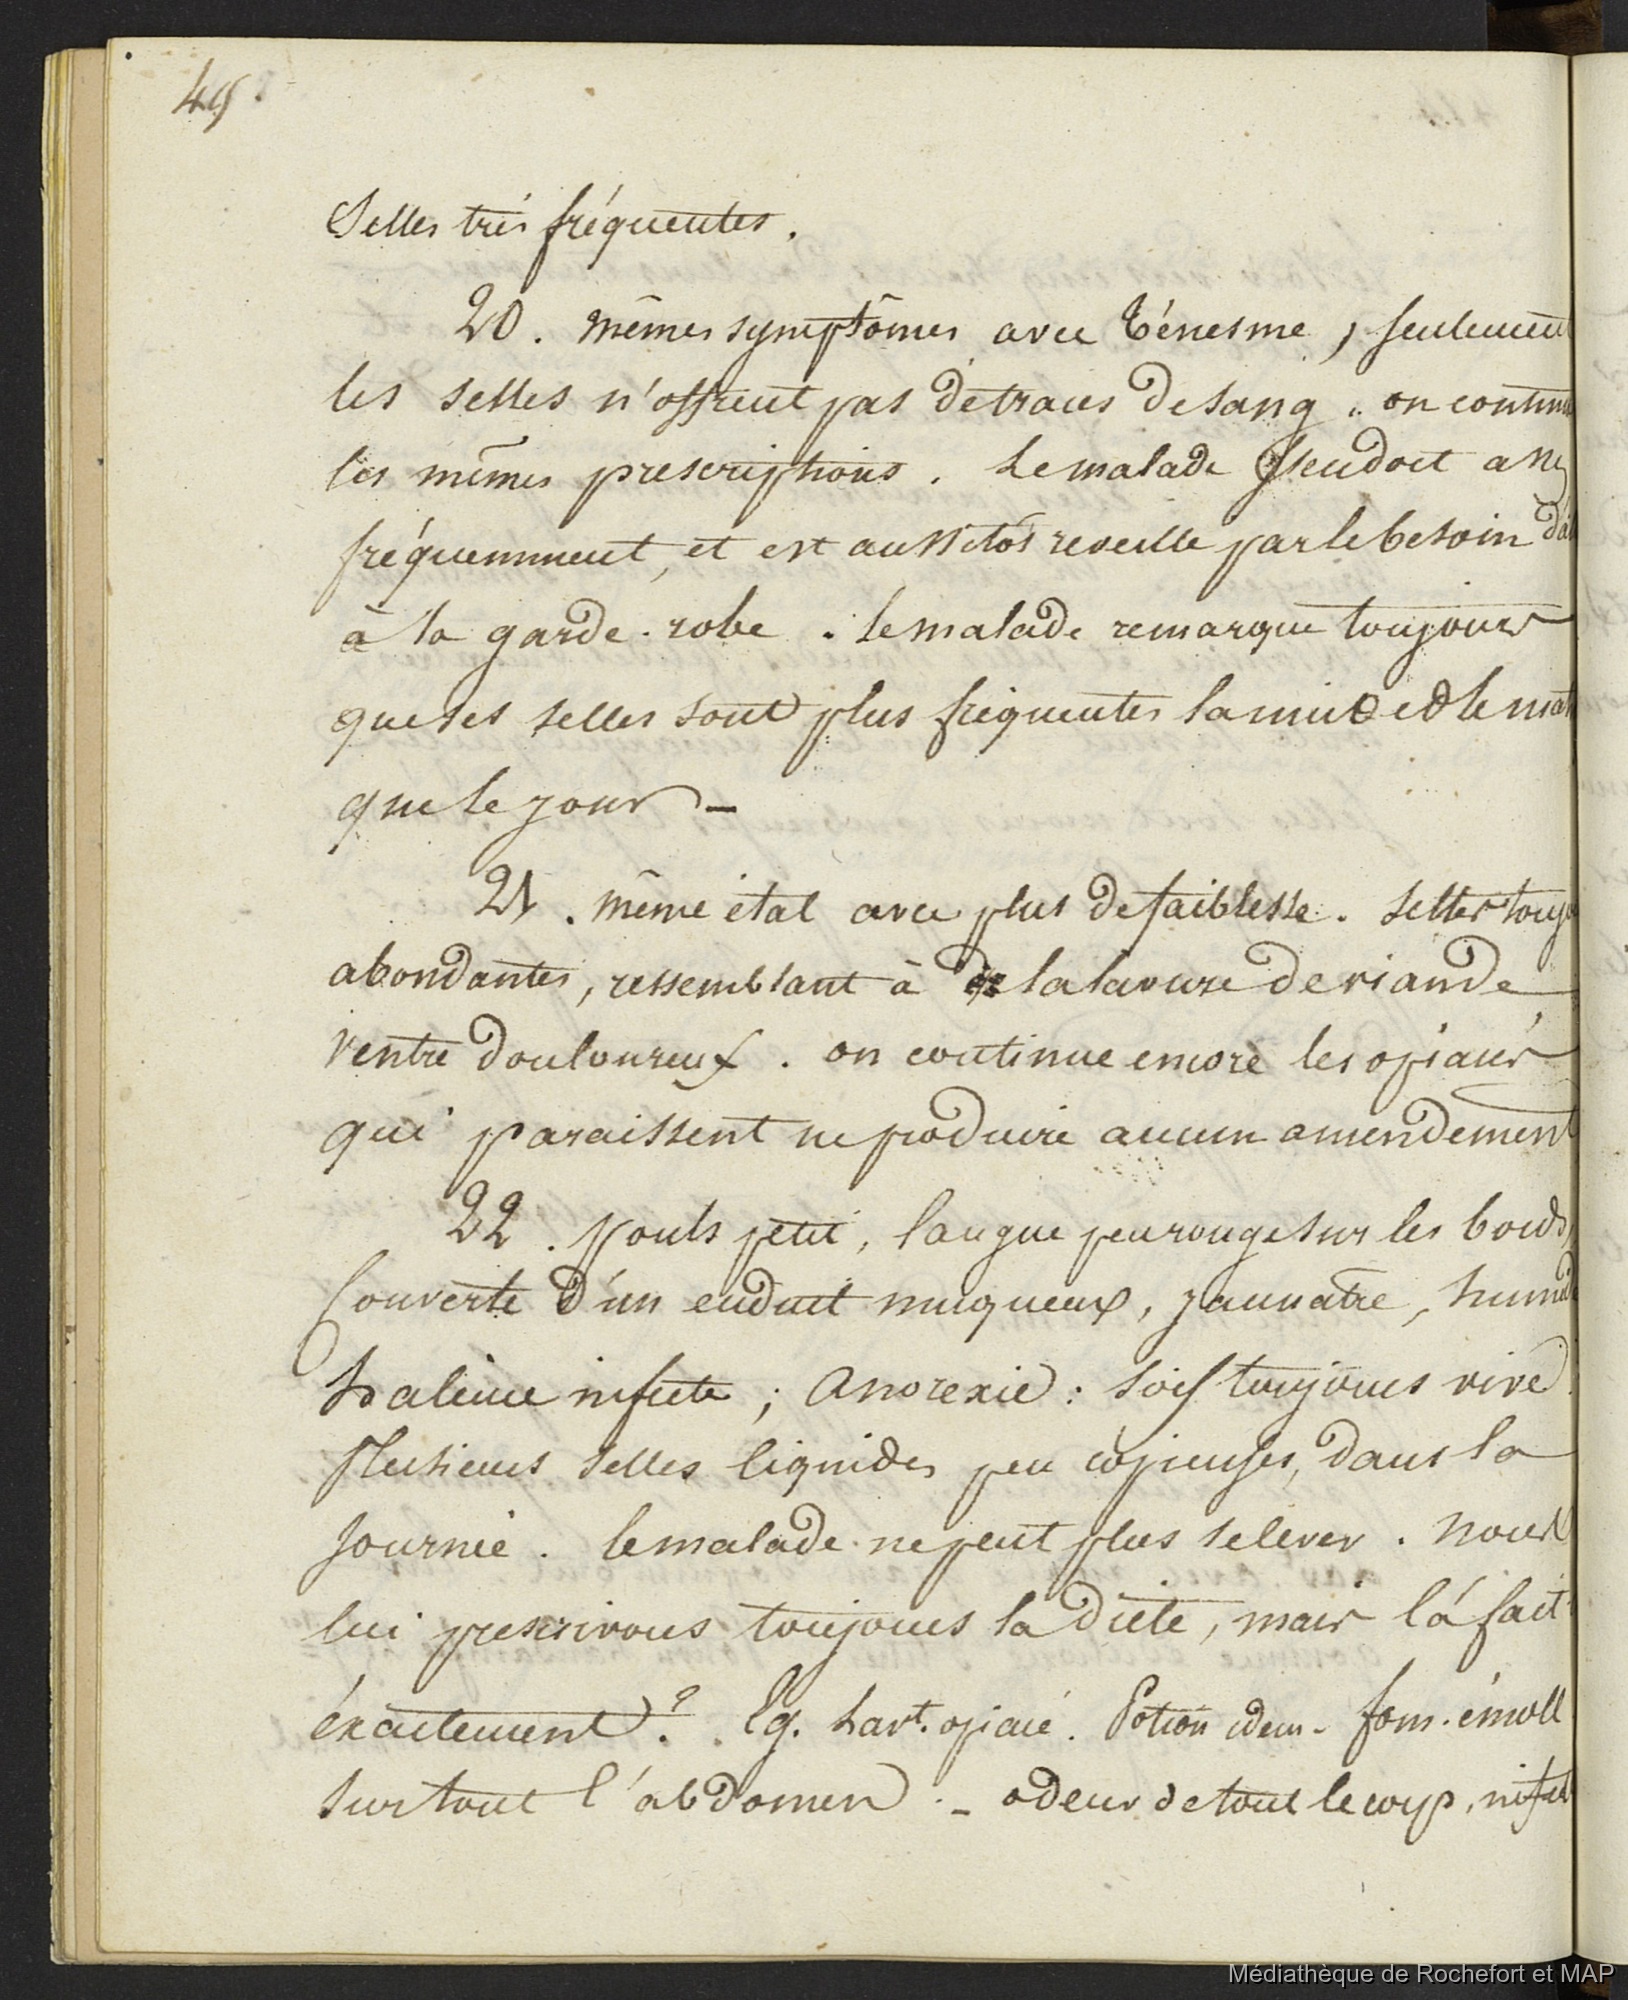 49
Selles très fréquentes.
20. mêmes symptômes avec ténesme, seulement
les selles n'offrent pas de traces de sang. on continu
les mêmes prescriptions. Le malade s'endort assez
fréquemment, et est aussitôt reveillé par le besoin d'al
à la garde-robe. le malade remarque toujours
que ses selles sont plus fréquentes la nuit et le mat
que le jour –
21. même état avec plus de faiblesse. Selles toujo
abondantes, ressemblant à de la lavure de viande
Ventre douloureux. on continue encore les opiacés
qui paraissent ne produire aucun amendement
22. Pouls petit, langue peu rouge sur les bords,
Couverte d'un enduit muqueux, jaunatre, humid
haleine infecte; anorexie: soif toujours vive
Plusieurs selles liquides peu copieuses, dans la
Journée. le malade ne peut plus se lever. Nous
lui prescrivons toujours la diète, mais l'a fait-
éxactement? . Lav. opiacé. Potion idem – fom. émoll
sur tout l'abdomen. – odeur de tout le corps, infect
Médiathèque de Rochefort et MAP